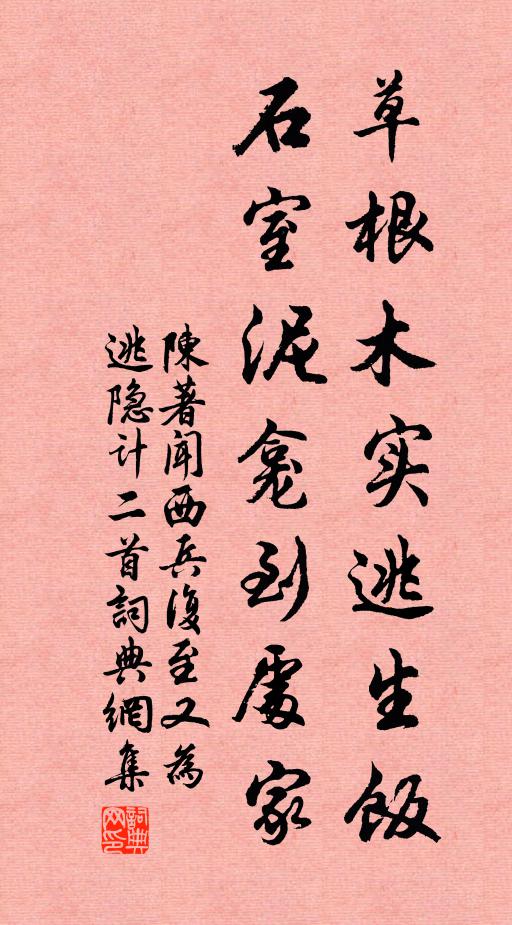 草根木实逃生饭
石室泥龛到處家
陳著闻西兵復至又為
逃隐计二首詞典網集
詞典
网印